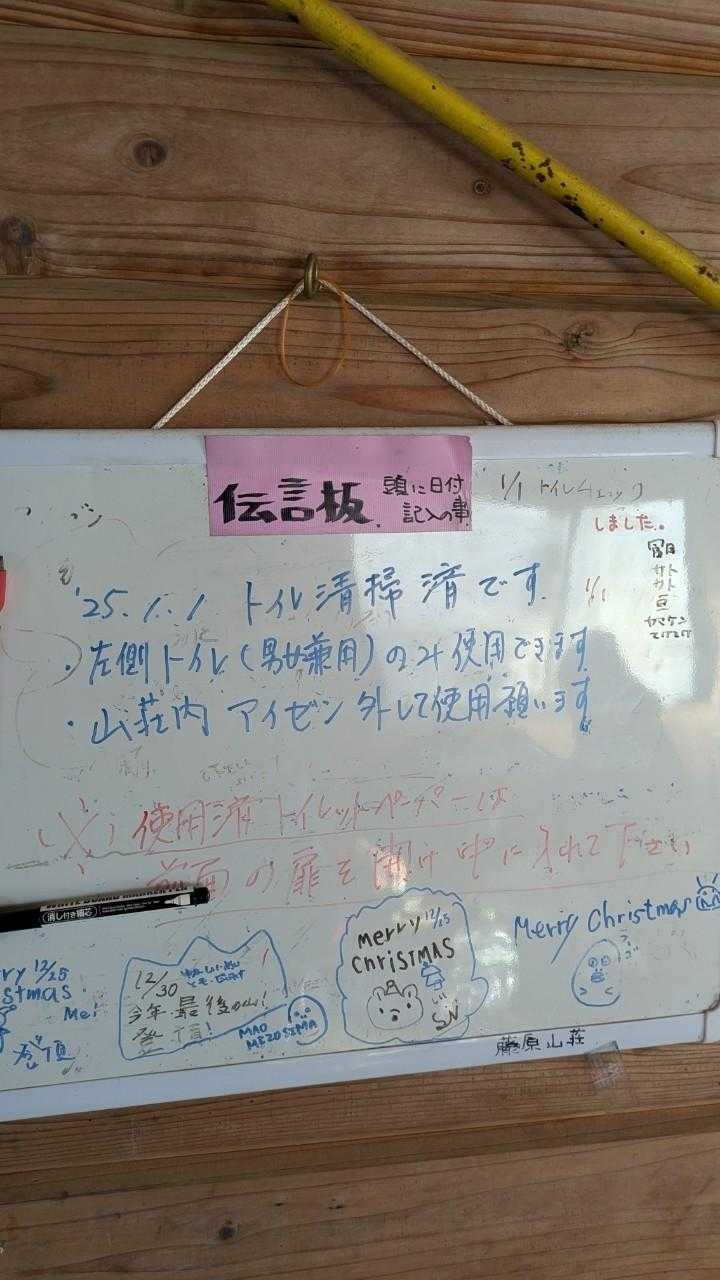 伝言板
頭に日付
記入の事
1/1 トイレチェック
しました。
'25.1.1 トイレ清掃済です
1/1
・左側トイレ(男女兼用)のみ使用できます
・山荘内 アイゼン外して使用願います
使用済トイレットペーパーは
前面の扉を開け中に入れて下さい
(消し付き細芯)
12/25
stmas
Me!
登頂
12/30
今年最後の山!
登頂!
MAO
MEZOSIMA
Merry 12/25
CHRISTMAS
SN
Merry Christmas
藤原山荘